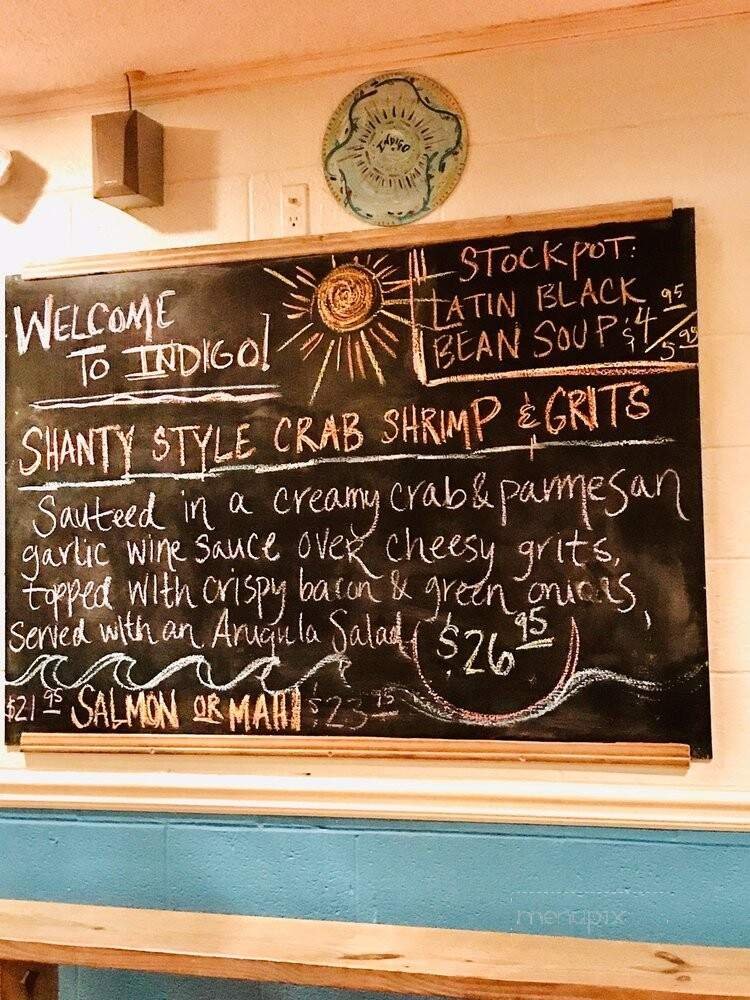 Indigo
WELCOME
TO INDIGO!
STOCKPOT:
LATIN BLACK
BEAN SOUP $4 95/5 95
SHANTY STYLE CRAB SHRIMP & GRITS
Sauteed in a creamy crab & parmesan
garlic wine sauce over cheesy grits,
topped with crispy bacon & green onions,
served with an Arugula Salad $26 95
$21 95 SALMON OR MAHI $23
menupix